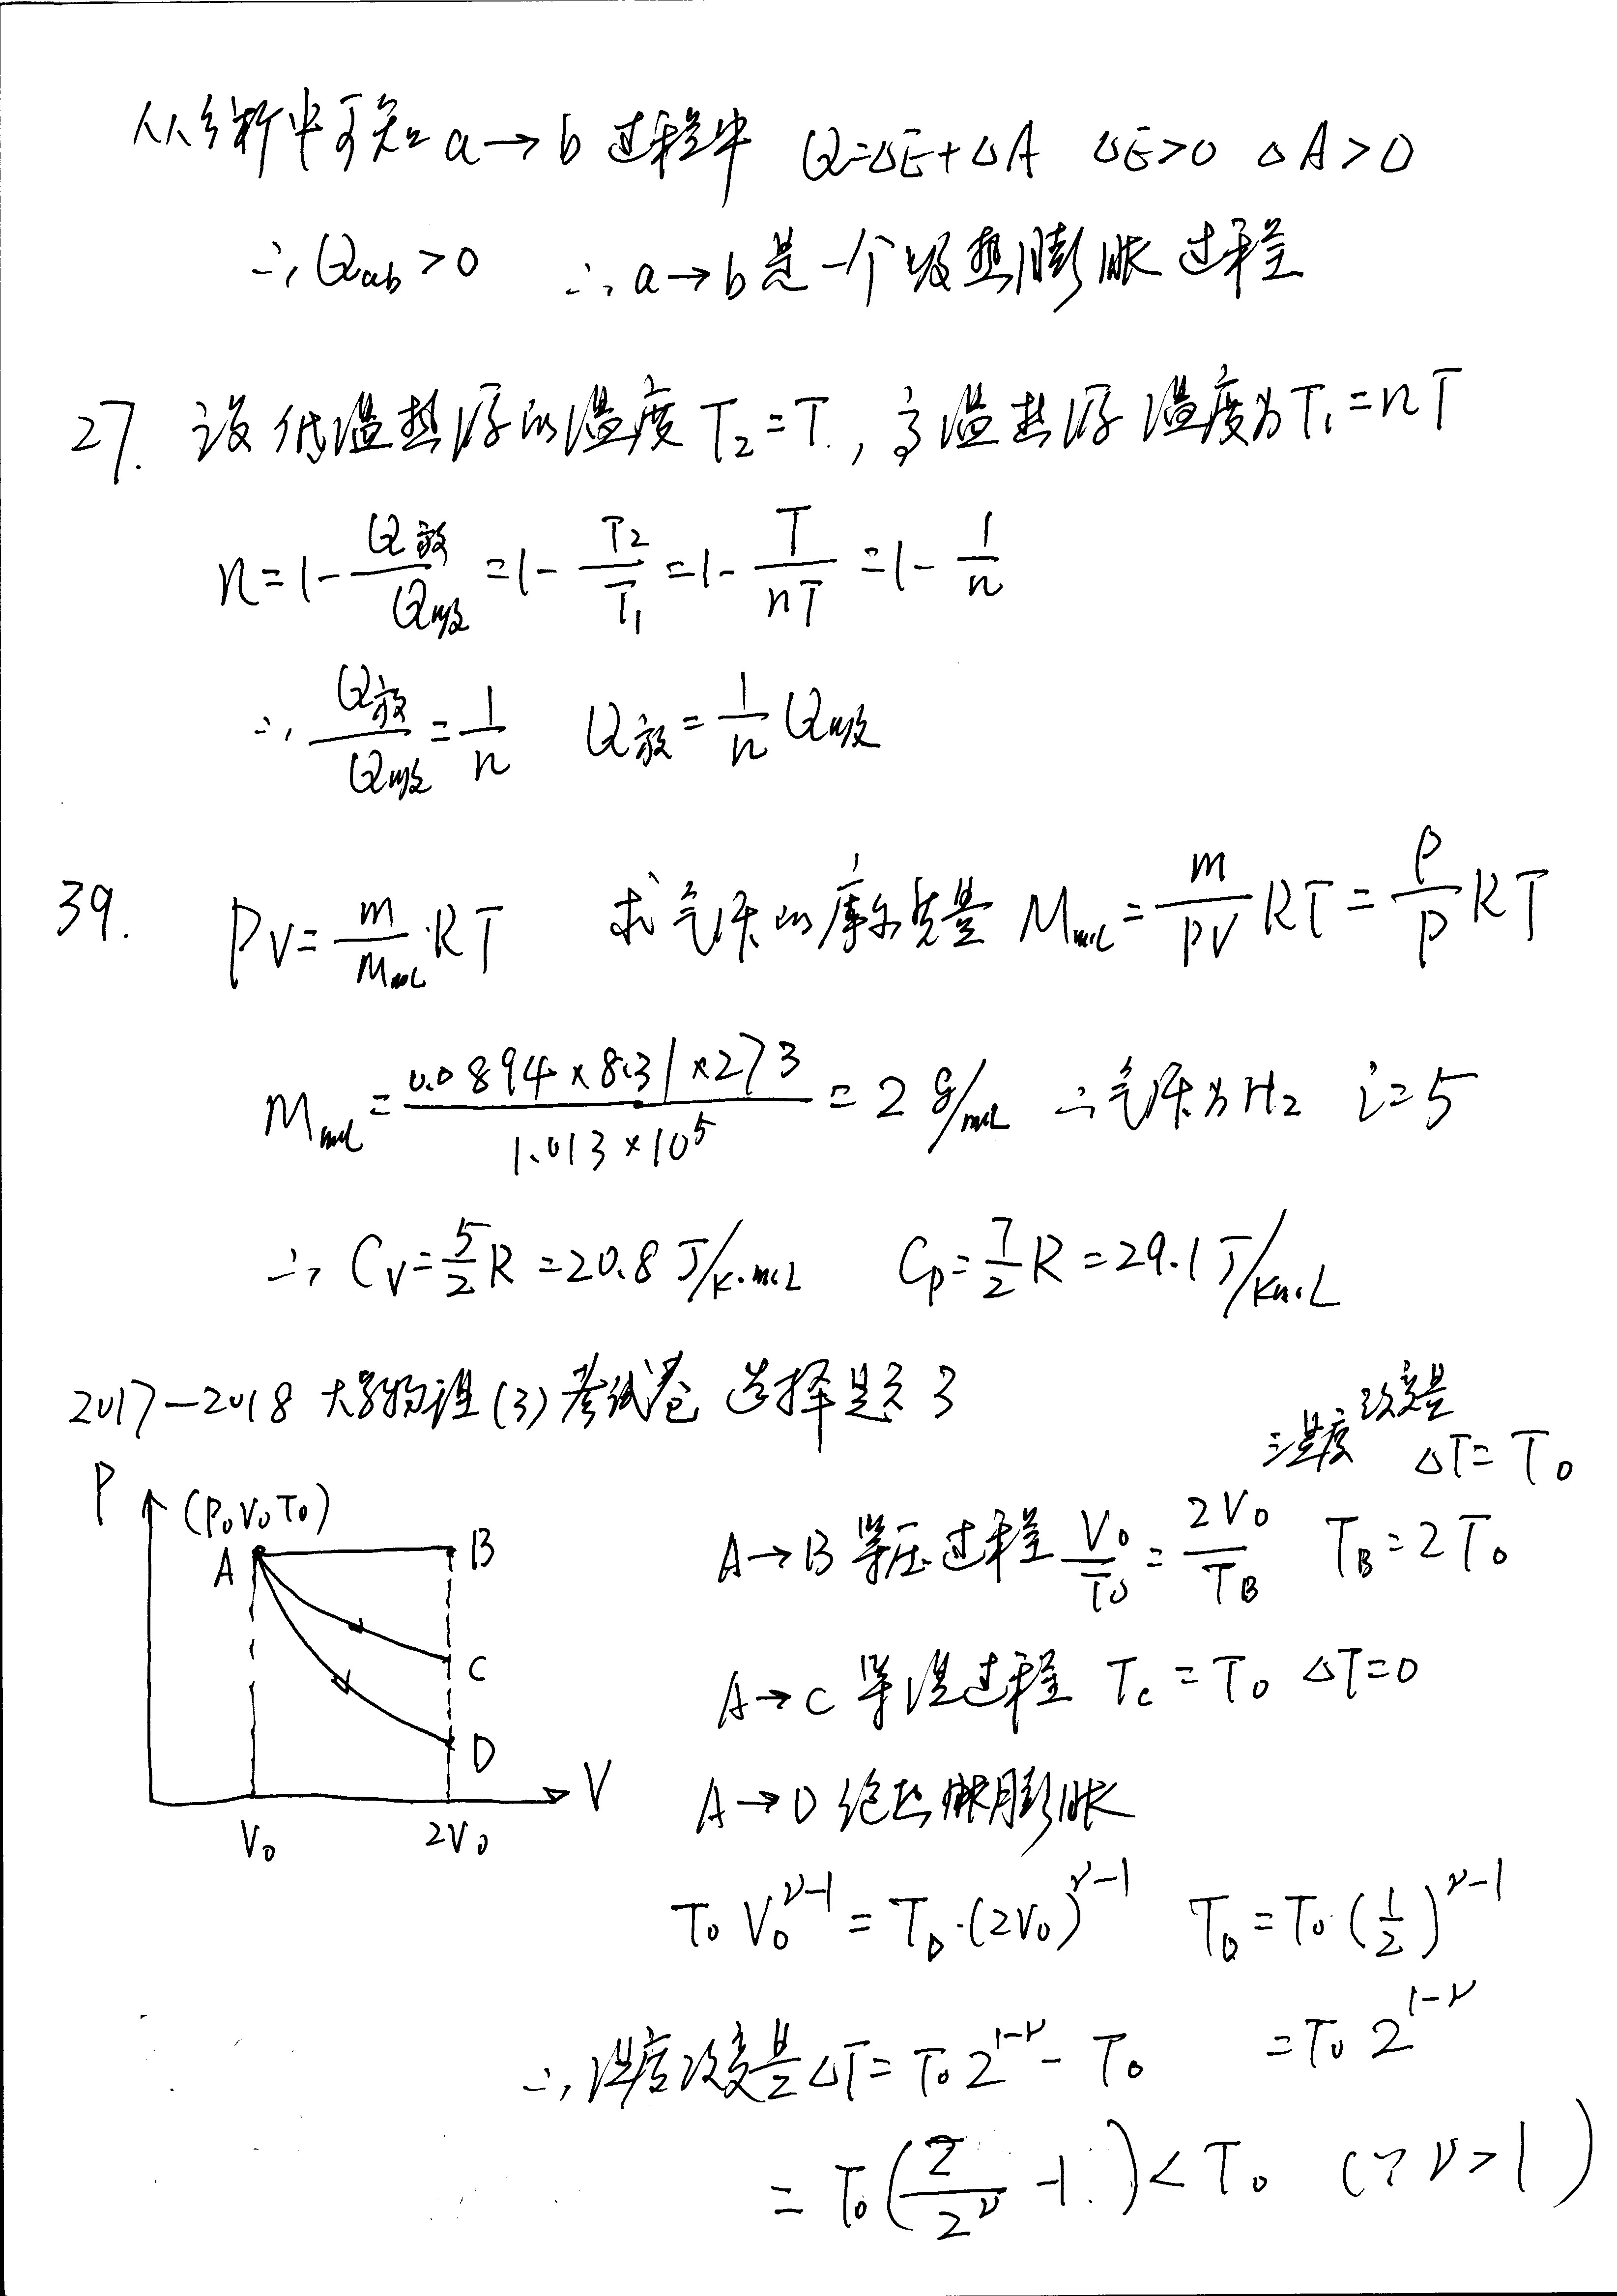 从分析中可知 a→b 过程中 Q=ΔE+ΔA ΔE>0 ΔA>0
∴Qab>0 ∴a→b是一个吸热膨胀过程
27. 设低温热源的温度T₂=T, 高温热源温度为T₁=nT
η=1-Q放/Q吸=1-T₂/T₁=1-T/nT=1-1/n
∴ Q放/Q吸=1/n Q放=1/n Q吸
39. PV=m/Mmol·RT 求气体的摩尔质量 Mmol=m/PV RT=ρ/P RT
Mmol=0.0894×8.31×273/1.013×10⁵=2 g/mol ∴气体为H₂ i=5
∴ Cv=5/2 R=20.8 J/K·mol Cp=7/2 R=29.1 J/K·mol
2017-2018 大学物理(3)考试卷 选择题 3
温度改变量 ΔT=T₀
P (P₀V₀T₀)
A B
C
D
V
V₀ 2V₀
A→B 等压过程 V₀/T₀=2V₀/TB TB=2T₀
A→C 等温过程 Tc=T₀ ΔT=0
A→D 绝热膨胀
T₀V₀^(γ-1)=TD·(2V₀)^(γ-1) TD=T₀·(1/2)^(γ-1)
=T₀2^(1-γ)
∴温度改变量ΔT=T₀2^(1-γ)-T₀
=T₀(2/2^γ-1)<T₀ (∵γ>1)